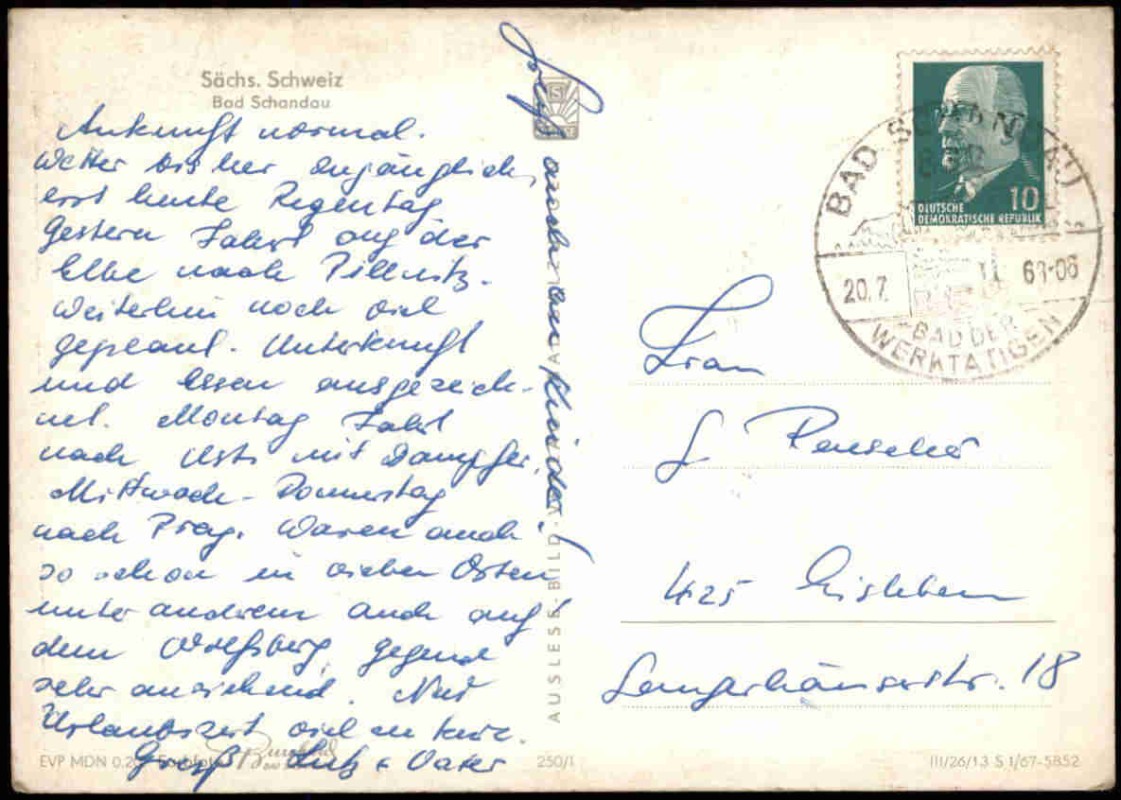 Sächs. Schweiz
Bad Schandau
Ankunft normal.
Wetter bisher
erst heute Regentag
Gestern Fahrt auf der
Elbe nach Pillnitz.
Weiterhin noch viel
geplant. Unterkunft
und Essen ausgezeich-
net. Montag Fahrt
nach mit Dampfer,
Mittwoch - Donnerstag
nach Prag. Waren auch
so schon in vielen Orten
unter anderem auch auf
dem Wolfsberg, Gegend
sehr anziehend. Nur
Urlaubszeit viel zu kurz.
Gruß Lutz + Vater
Gruß an die Kinder!
AUSLESE-BILD-VERLAG
EVP MDN 0,20
250/1
DEUTSCHE
DEMOKRATISCHE REPUBLIK
10
BAD SCHANDAU
20.7. 68-08
BAD DER
WERKTÄTIGEN
Frau
425 Eisleben
Sangerhäuserstr. 18
III/26/13 S 1/67-5852